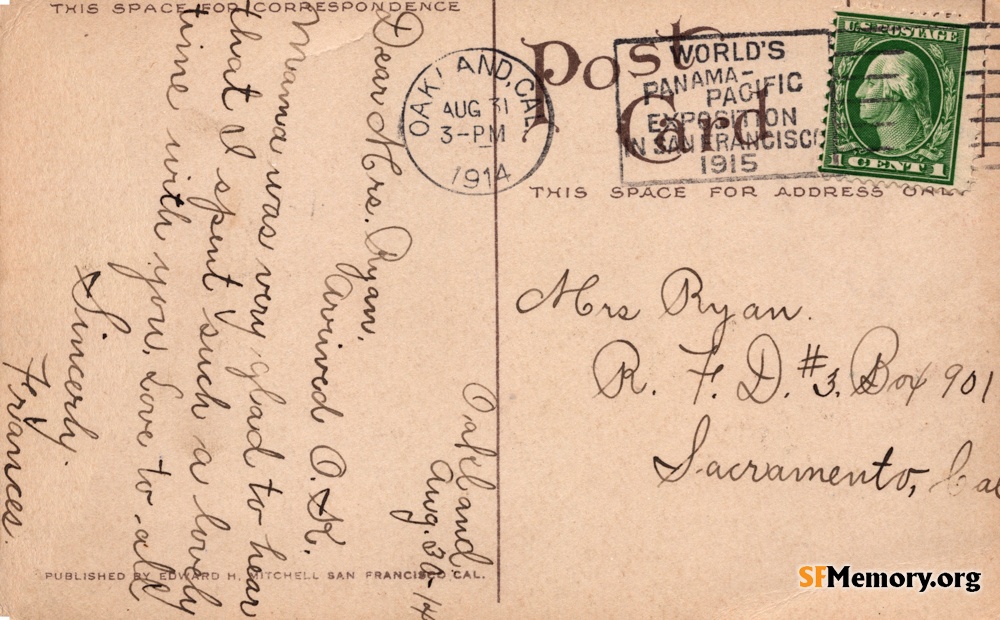 THIS SPACE FOR CORRESPONDENCE
Oakland
Aug. 30-14
Dear Mrs. Ryan,
Arrived O.K.
Mama was very glad to hear
that I spent such a lovely
time with you. Love to all
Sincerly.
Frances.
PUBLISHED BY EDWARD H. MITCHELL SAN FRANCISCO, CAL.
Post
Card
OAKLAND, CAL.
AUG 31
3-PM
1914
WORLD'S
PANAMA-
PACIFIC
EXPOSITION
IN SAN FRANCISCO
1915
U.S. POSTAGE
1 CENT 1
THIS SPACE FOR ADDRESS ONLY
Mrs Ryan.
R. F. D. #3. Box 901
Sacramento, Cal
SFMemory.org